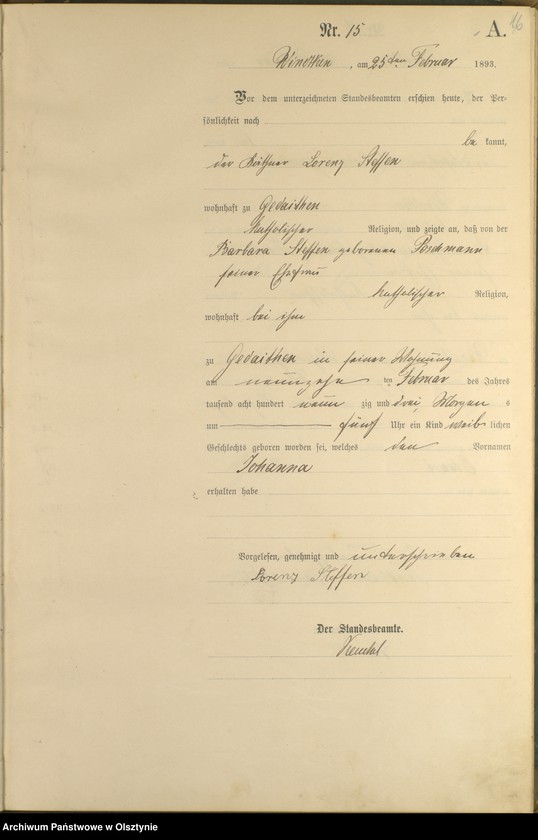 16
Nr. 15 A.
, am 25ten Februar 1893.
Vor dem unterzeichneten Standesbeamten erschien heute, der Per-
sönlichkeit nach
be kannt,
der Käthner Lorenz Steffen
wohnhaft zu Gedaithen
katholischer Religion, und zeigte an, daß von der
Barbara Steffen geborenen Poschmann
seiner Ehefrau
katholischer Religion,
wohnhaft bei ihm
zu Gedaithen in seiner Wohnung
am neunzehn ten Februar des Jahres
tausend acht hundert neun zig und drei, Morgen s
um fünf Uhr ein Kind weib lichen
Geschlechts geboren worden sei, welches den Vornamen
Johanna
erhalten habe
Vorgelesen, genehmigt und unterschrieben
Lorenz Steffen
Der Standesbeamte.
Archiwum Państwowe w Olsztynie